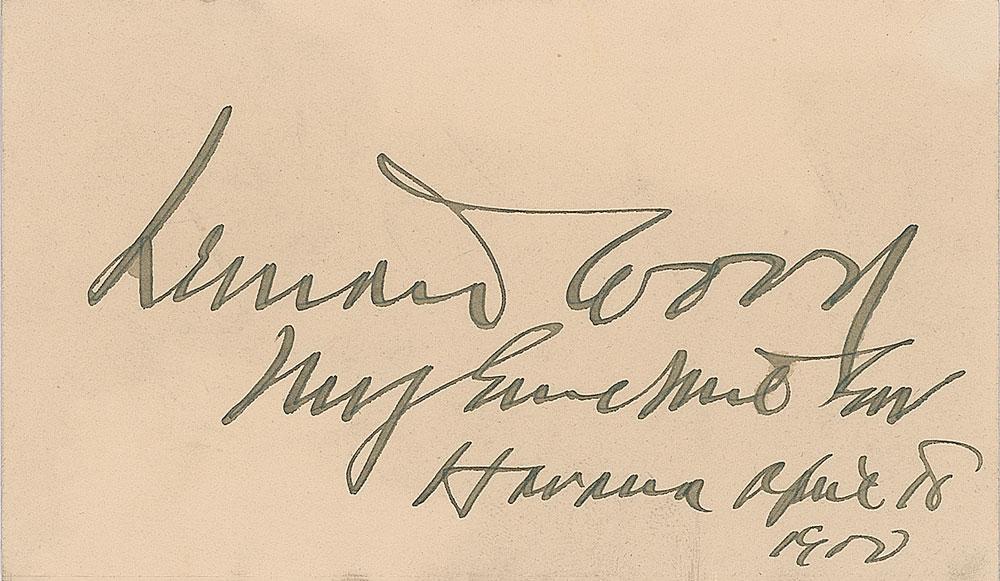 Leonard Wood
Maj Genl
Havana April 8
1900